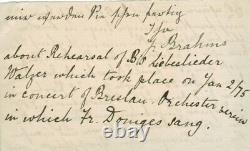 mir werden Sie schon fertig
Ihr
J. Brahms
about Rehearsal of B's Liebeslieder
Walzer which took place on Jan 2/75
in concert of Breslau. Orchester verein
in which Fr. Doniges sang.